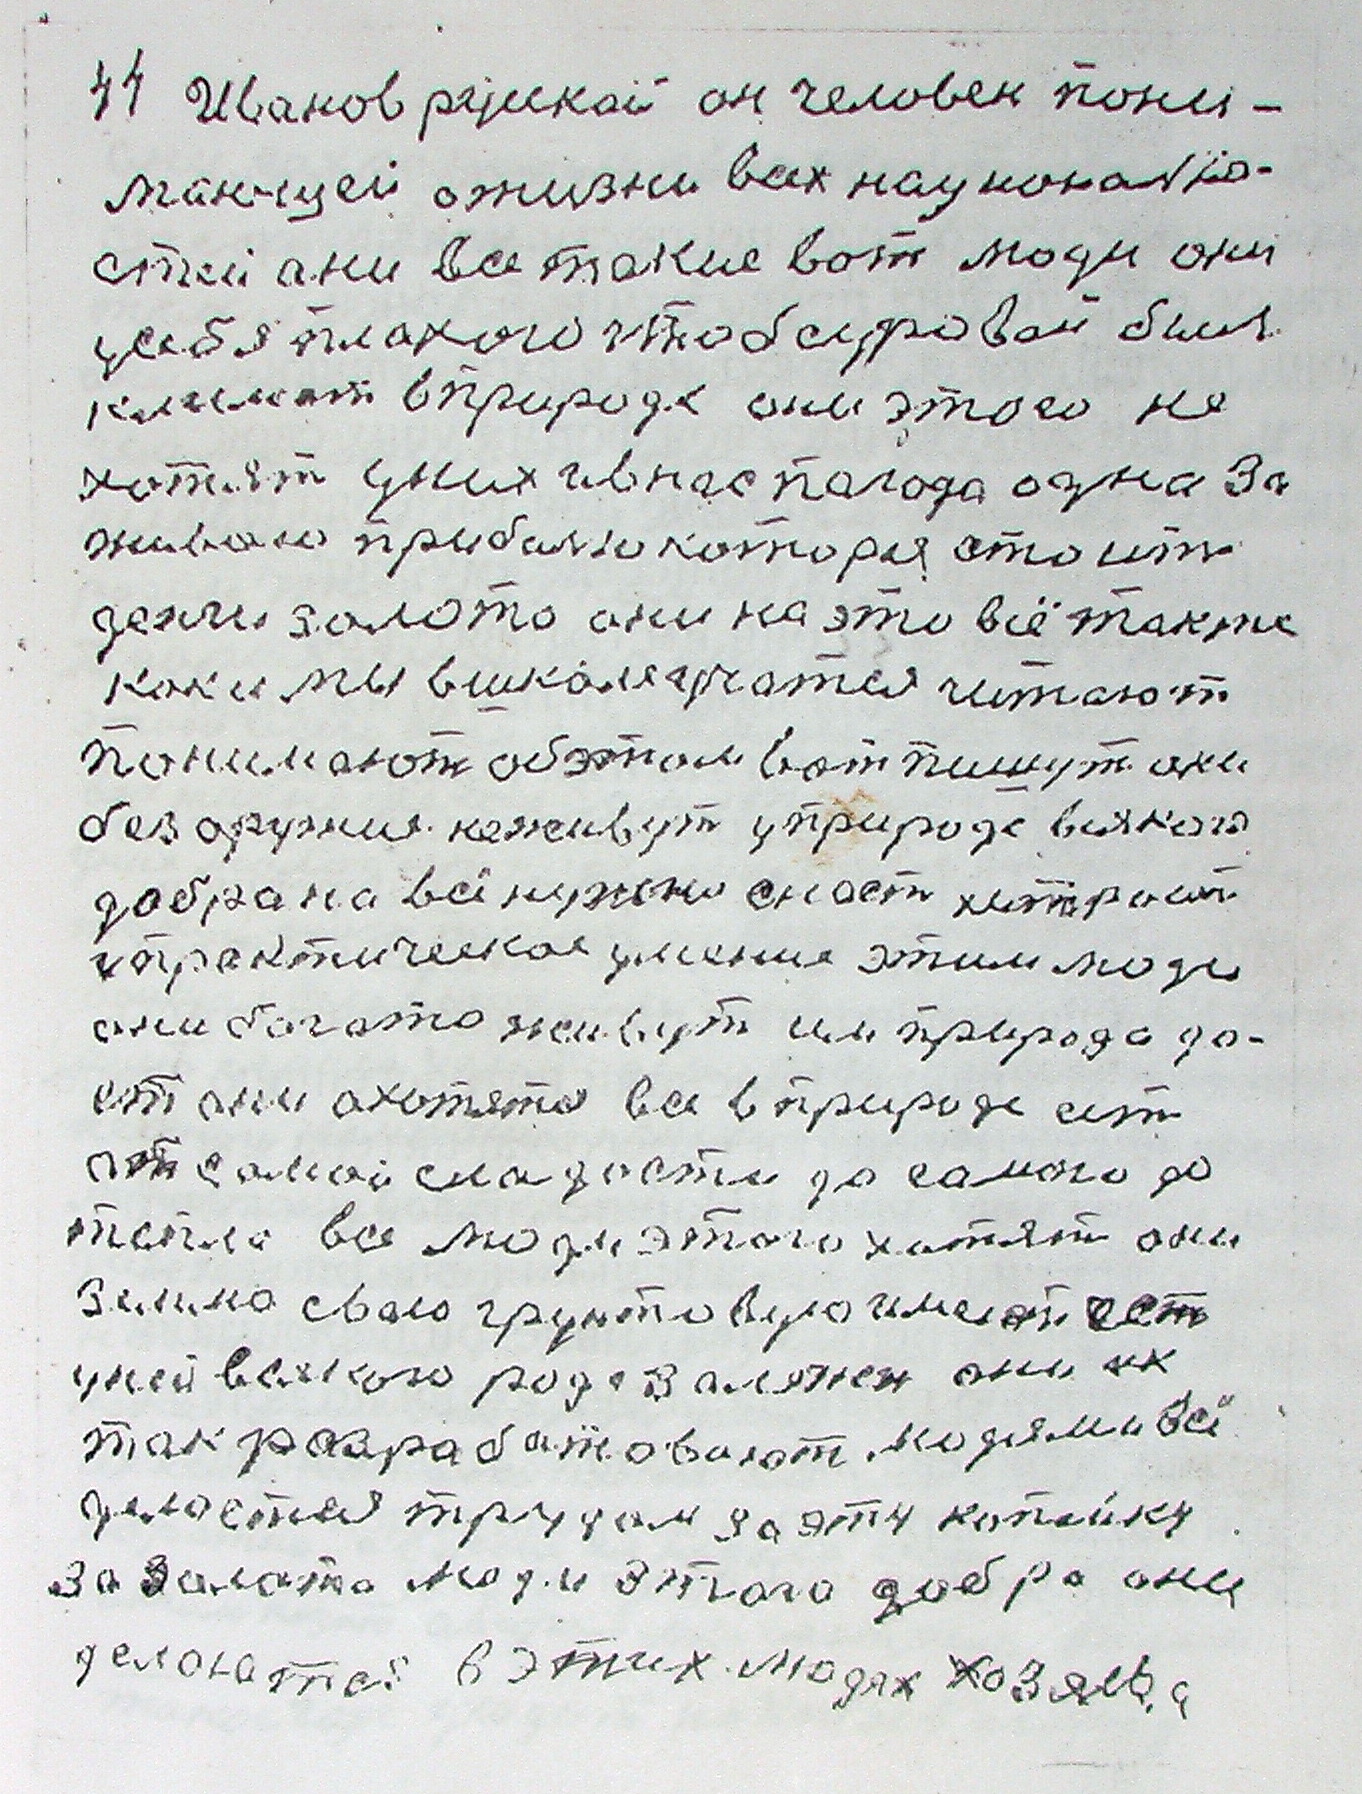 44 Иванов руцкай он человек пони-
мающей ожизни всех национальнo-
стей ани все такие вот люди они
усебя плохого чтоб суровай был
климат вприроде они этого не
хотят уних ивнас пагода одна за
живою прибылю которыя стоит
денги золото они на это всё также
как и мы вшколе учатся читают
понимают обэтом вот пишут они
без оружия неживут уприроде всякого
добра на всё нужно снаст хитраит
ипрактическое умение этим люди
они богато живут им природа да-
ет они охотято все вприроде ест
от самой сладости до самого до
тепла все люди этого хотят они
Зимлю сваю грунтовую имеют ест
уней всякого рода залежей они их
так разрабатовают людями всё
делается трудом заэту копейку
За залато люди этого добра они
делаются вэтих людях хозяева